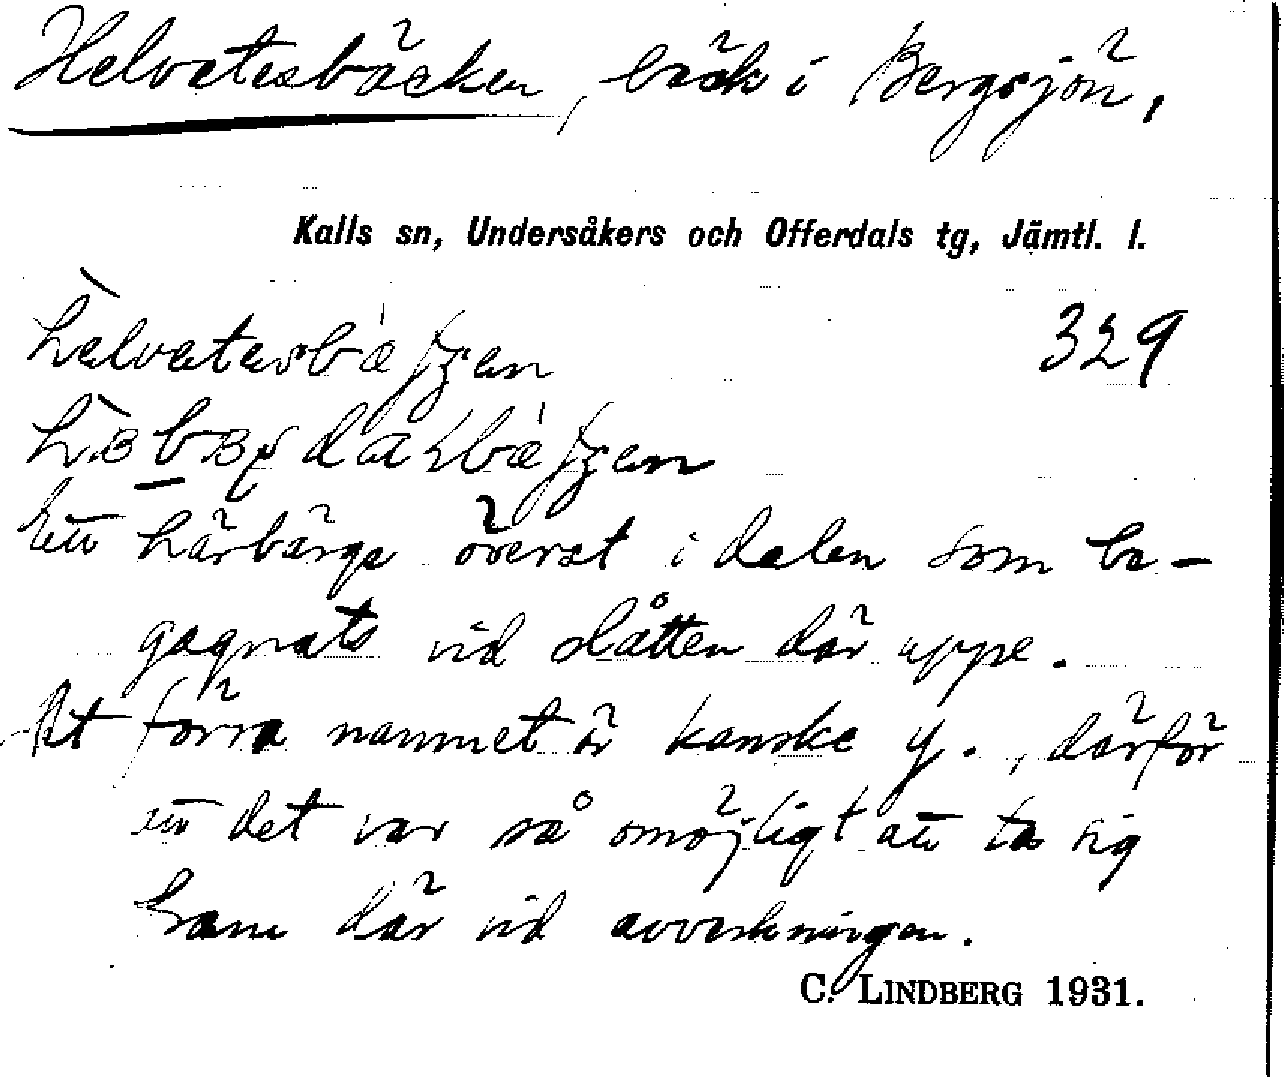 Helvetesbäcken, bäck i Bergsjön,
Kalls sn, Undersåkers och Offerdals tg, Jämtl. l.
329
Ett härbärge överst i dalen som be-
gagnats vid slåtten där uppe.
Det förra namnet är kanske y., därför
att det var så omöjligt att ta sig
fram där vid avverkningen.
C. LINDBERG 1931.